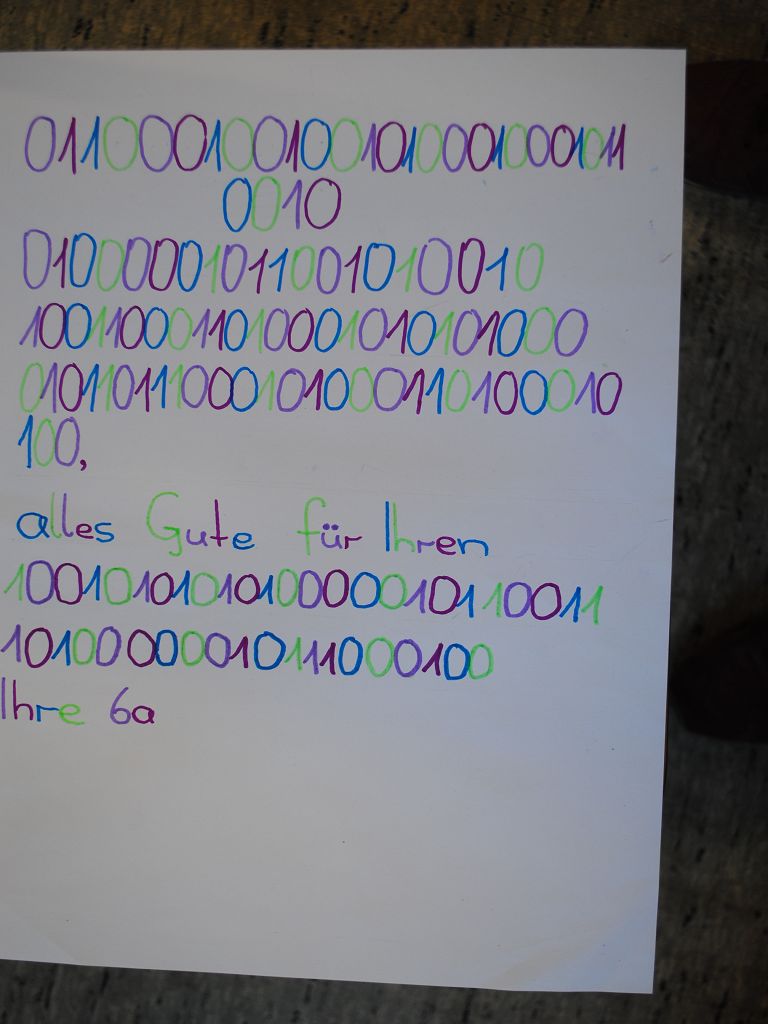 01100010010010100010001011
0010
01000001011001010010
1001100011010001010101000
010110111000101000110100010
100,
alles Gute für Ihren
1001010101010000010110011
10100000010111000100
Ihre 6a